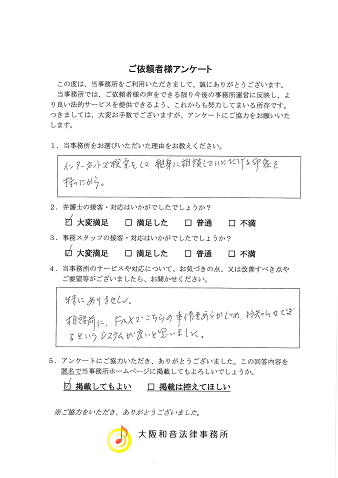 ご依頼者様アンケート
この度は、当事務所をご利用いただきまして、誠にありがとうございます。
当事務所では、ご依頼者様の声をできる限り今後の事務所運営に反映し、よ
り良い法的サービスを提供できるよう、これからも努力してまいる所存です。
つきましては、大変お手数でございますが、アンケートにご協力をお願いいた
します。
1．当事務所をお選びいただいた理由をお教えください。
インターネットで検索をして、親身に相談していただける印象を
持ったから。
2．弁護士の接客・対応はいかがでしたでしょうか？
☑ 大変満足 □ 満足した □ 普通 □ 不満
3．事務スタッフの接客・対応はいかがでしたでしょうか？
☑ 大変満足 □ 満足した □ 普通 □ 不満
4．当事務所のサービスや対応について、お気づきの点、又は改善すべき点や
ご要望等がございましたら、お聞かせください。
特にありません。
相談前に、FAXでこちらの事情をあらかじめ、お知らせでき
るというシステムが良いと思いました。
5．アンケートにご協力いただき、ありがとうございました。この回答内容を
匿名で当事務所ホームページに掲載してもよろしいでしょうか。
☑ 掲載してもよい □ 掲載は控えてほしい
※ご協力をいただき、ありがとうございました。
大阪和音法律事務所